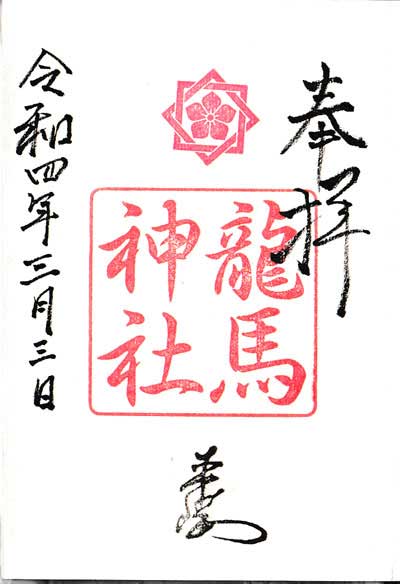 奉拝
龍馬
神社
令和四年三月三日